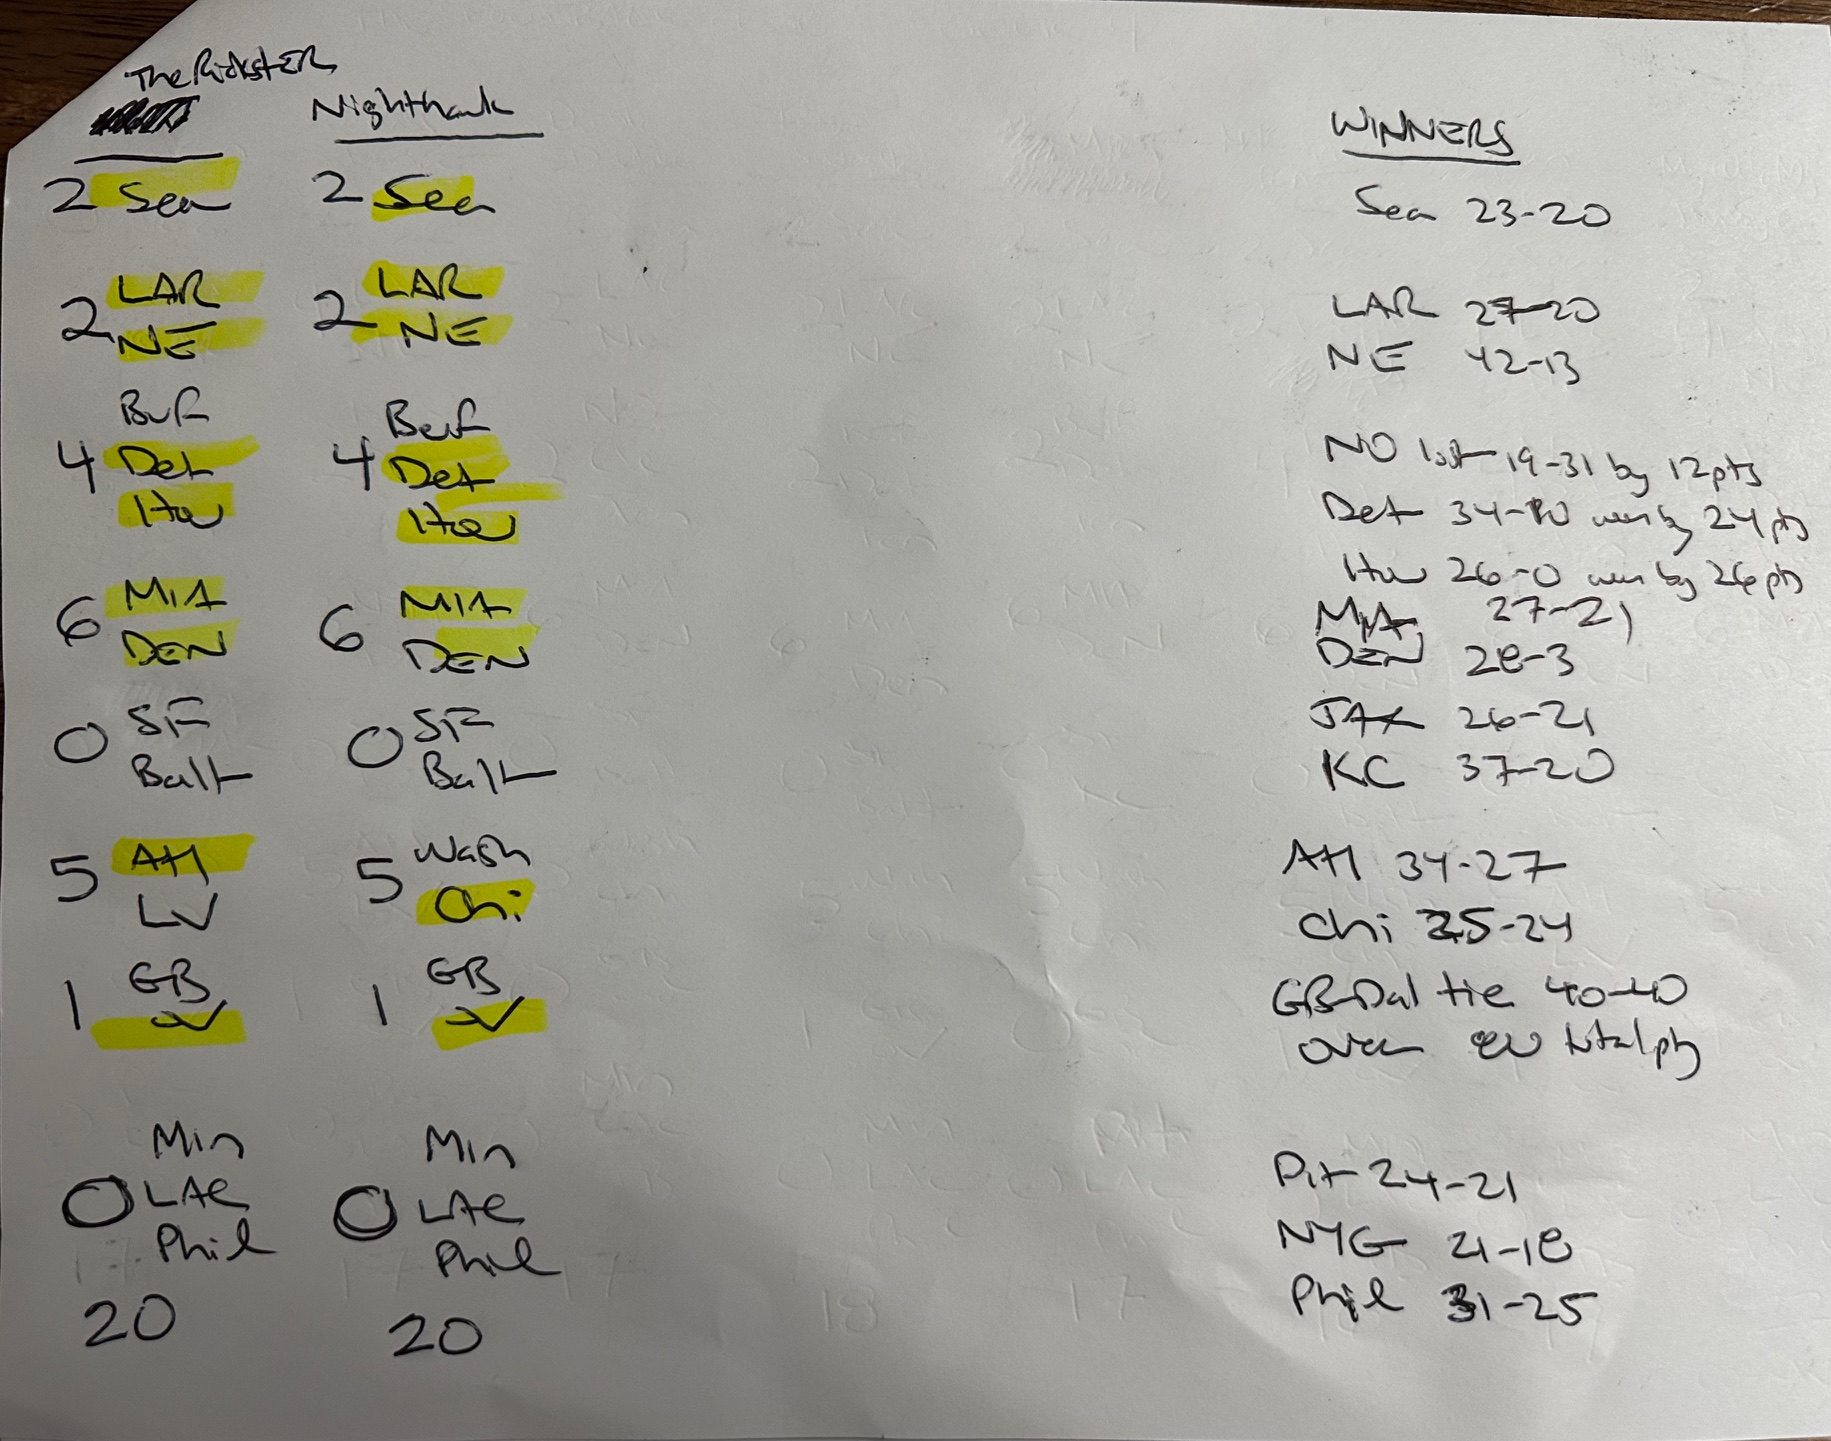 The Rickster
Nighthawk
WINNERS
2 Sea 2 Sea Sea 23-20
LAR LAR LAR 27-20
2 NE 2 NE NE 42-13
Buf Buf NO lost 19-31 by 12pts
4 Det 4 Det Det 34-10 won by 24 pts
Hou Hou Hou 26-0 won by 26 pts
MIA MIA MIA 27-21
6 DEN 6 DEN DEN 28-3
0 SF 0 SF JAX 26-21
Balt Balt KC 37-20
5 Atl 5 Wash Atl 34-27
LV Chi Chi 25-24
1 GB 1 GB GB-Dal tie 40-40
OV OV over 80 total pts
Min Min Pit 24-21
0 LAC 0 LAC NYG 21-18
Phil Phil Phil 31-25
20 20